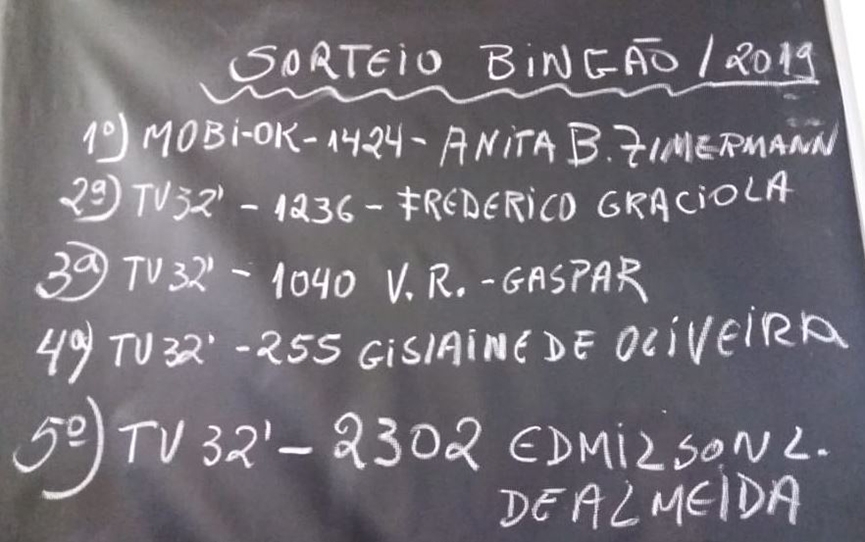 SORTEIO BINGÃO / 2019
1º) MOBI-OK - 1424 - ANITA B. ZIMERMANN
2º) TV 32' - 1236 - FREDERICO GRACIOLA
3º) TV 32' - 1040 V. R. - GASPAR
4º) TV 32' - 255 GISIAINE DE OLIVEIRA
5º) TV 32' - 2302 EDMILSON L.
DE ALMEIDA